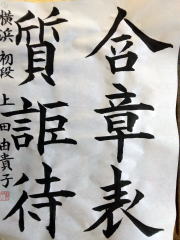 含章表
質詎待
横浜 初段 上田由貴子